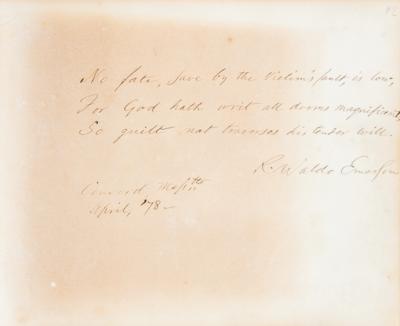 No fate, save by the victim's fault, is low,
For God hath writ all dooms magnificent,
So guilt not traverses his tender will.
R. Waldo Emerson
Concord, Mass.tts
April, '78 –